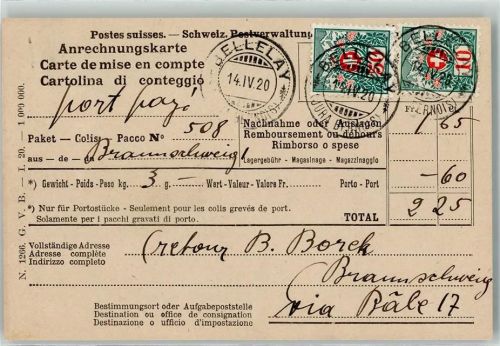 Postes suisses. — Schweiz. Postverwaltung
Anrechnungskarte
Carte de mise en compte
Cartolina di conteggio
BELLELAY
14.IV.20
BELLELAY
14.IV.20
(JURA
BELLELAY
14.IV.20
(BERNOIS)
50
10
port payé
Paket - Colis - Pacco No 508
aus - de - da Braunschweig
Nachnahme oder Auslagen
Remboursement ou débours
Rimborso o spese
Lagergebühr - Magasinage - Magazzinaggio
1 65
*) Gewicht - Poids - Peso kg. 3 - Wert - Valeur - Valore Fr. Porto - Port
- 60
*) Nur für Portostücke - Seulement pour les colis grevés de port.
Solamente per i pacchi gravati di porto.
TOTAL
2 25
Vollständige Adresse
Adresse complète
Indirizzo completo
retour B. Borek
Braunschweig
via Bâle 17
Bestimmungsort oder Aufgabepoststelle
Destination ou office de consignation
Destinazione o ufficio d'impostazione
N. 1266. G. V. B. - I. 20. - 1 000 000.